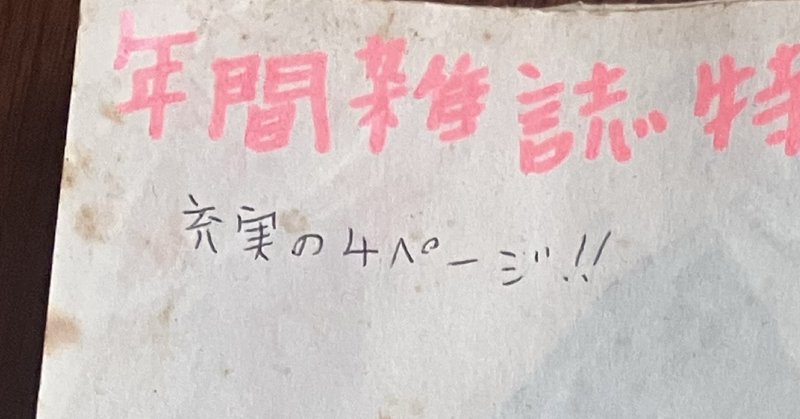 年間雑誌特
充実の4ページ!!